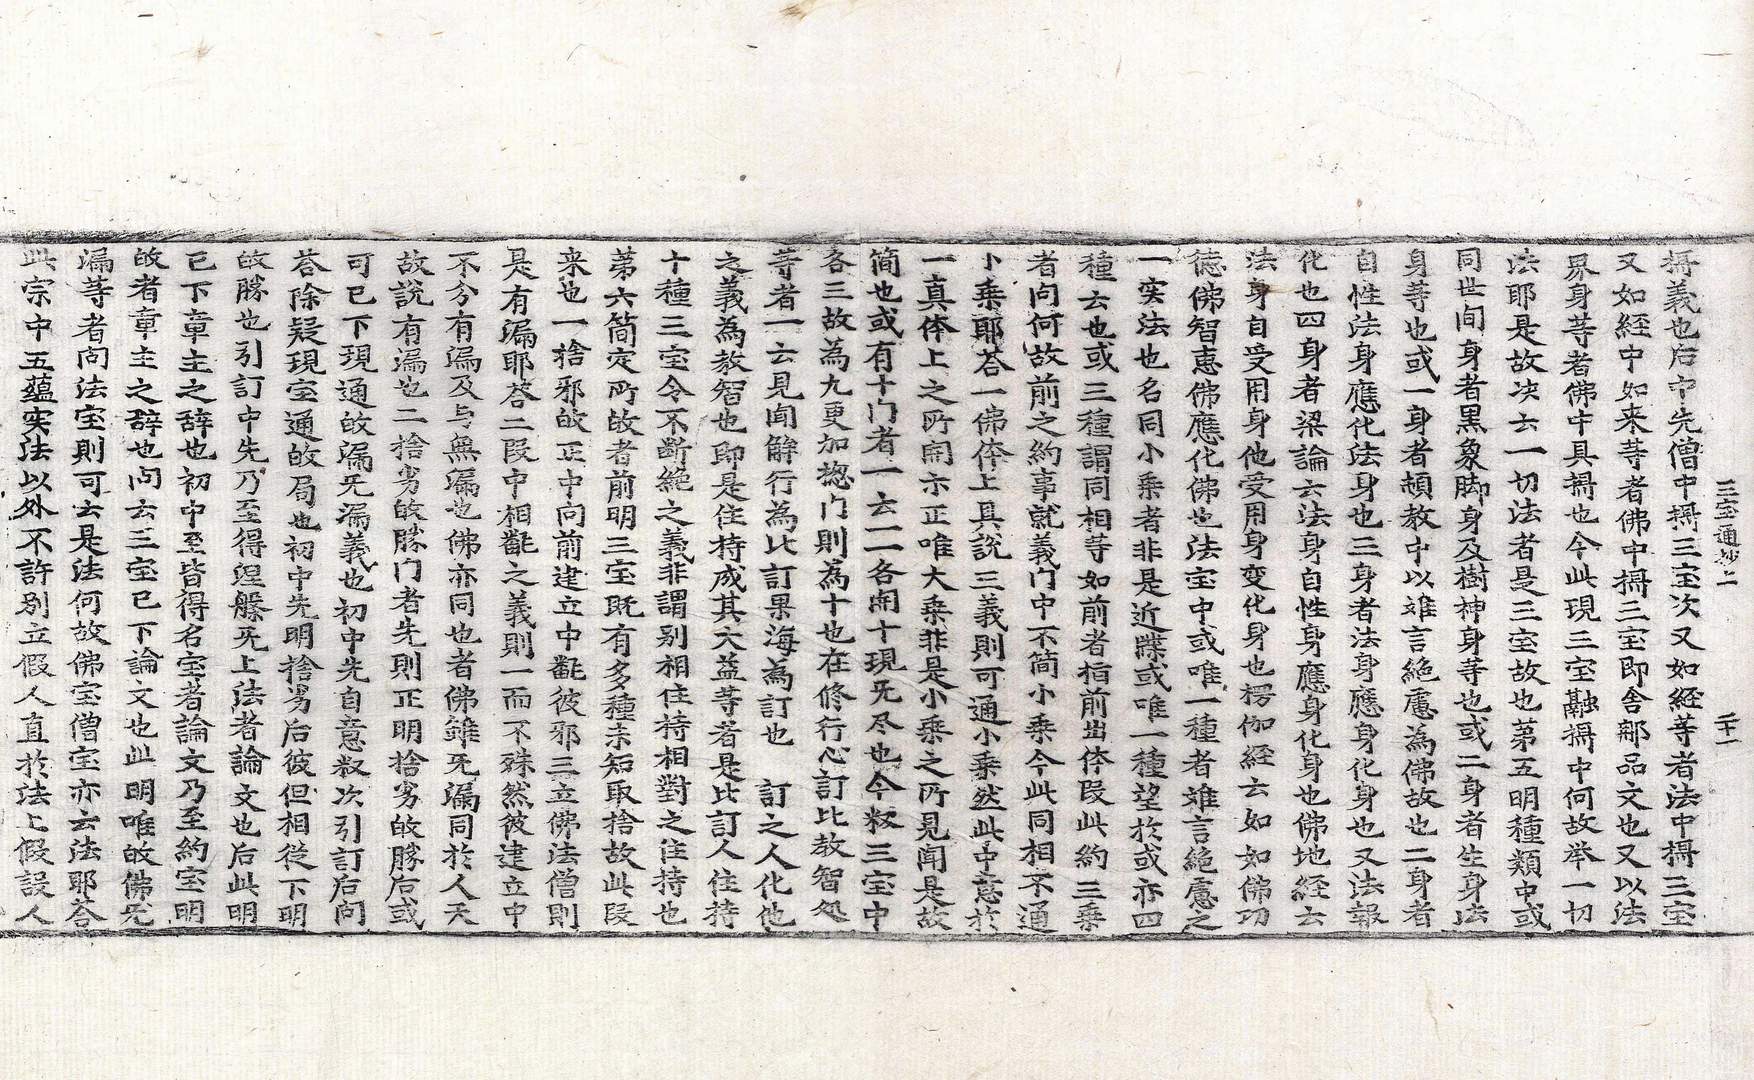 三宝通抄二　二十一
攝義也后中先僧中攝三宝次又如経等者法中攝三宝
又如経中如来等者佛中攝三宝即舍那品文也又以法
界身等者佛中具攝也今此現三宝融攝中何故举一切
法耶是故决云一切法者是三宝故也第五明種類中或
同世间身者黒象脚身及樹神身等也或二身者生身法
身等也或一身者頓教中以难言絶慮為佛故也二身者
自性法身應化法身也三身者法身應身化身也又法報
化也四身者梁論云法身自性身應身化身也佛地経云
法身自受用身他受用身变化身也楞伽経云如如佛功
徳佛智恵佛應化佛也法宝中或唯一種者难言絶慮之
一实法也名同小乗者非是近牒或唯一種望於或亦四
種云也或三種謂同相等如前者指前出体段此約三乗
者问何故前之約事就義门中不简小乗今此同相不通
小乗耶荅一佛体上具説三義則可通小乗然此中意於
一真体上之所開示正唯大乗非是小乗之所見闻是故
简也或有十门者一云一一各開十現旡尽也今叙三宝中
各三故為九更加惣门則為十也在修行心訂比教智处
等者一云見聞觧行為比訂果海為訂也　訂之人化他
之義為教智也即是住持成其大益等者是比訂人住持
十種三宝令不断絶之義非謂别相住持相對之住持也
第六简定所故者前明三宝既有多種未知取捨故此段
来也一捨邪故正中向前建立中翻彼邪三立佛法僧則
是有漏耶荅二段中相翻之義則一而不殊然彼建立中
不分有漏及与無漏也佛亦同也者佛雖旡漏同於人天
故説有漏也二捨劣故勝门者先則正明捨劣故勝后或
可已下現通故漏旡漏義也初中先自意叙次引訂后问
荅除疑現宝通故局也初中先明捨劣后彼但相從下明
故勝也引訂中先乃至得涅槃旡上法者論文也后此明
已下章主之辞也初中至皆得名宝者論文乃至約宝明
故者章主之辞也问云三宝已下論文也此明唯故佛旡
漏等者问法宝則可云是法何故佛宝僧宝亦云法耶荅
此宗中五蕴实法以外不許别立假人直於法上假設人